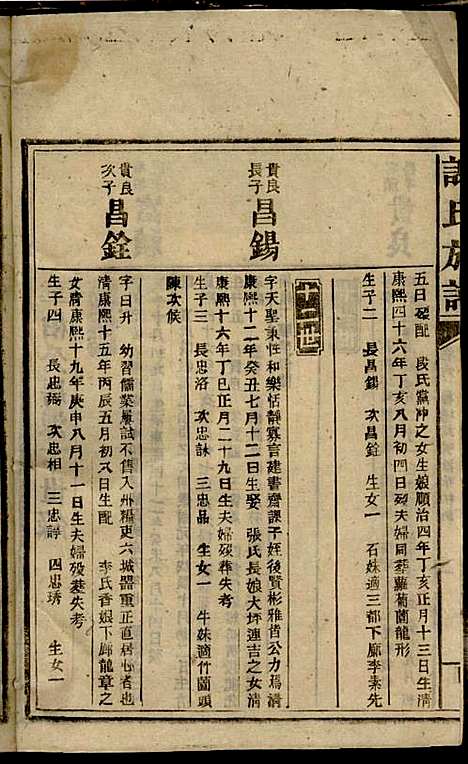 氏族譜
五日歿配 段氏黨冲之女生娘順治四年丁亥正月十三日生清
康熙四十六年丁亥八月初四日歿夫婦同塟蘿蔔薗龍形
生子二 長昌錫 次昌銓 生女一 石妹適三都下廊李素先
貴良長子 昌錫
字天聖秉性和樂恬靜寡言建書齋課子姪後賢彬雅皆公力焉清
康熙十二年癸丑七月十二日生娶 張氏長娘大坪連吉之女清
康熙十六年丁巳正月二十九日生夫婦歿葬失考
生子三 長忠洛 次忠詠 三忠品 生女一 牛妹適竹薗頭
陳次候
貴良次子 昌銓
字曰升 幼習儒業屢試不售入州糈吏六城器重正直居心者也
清康熙十五年丙辰五月初八日生配 李氏香娘下廊龍章之
女清康熙十九年庚申八月十一日生夫婦歿塟失考
生子四 長忠瑒 次忠相 三忠諄 四忠琇 生女一